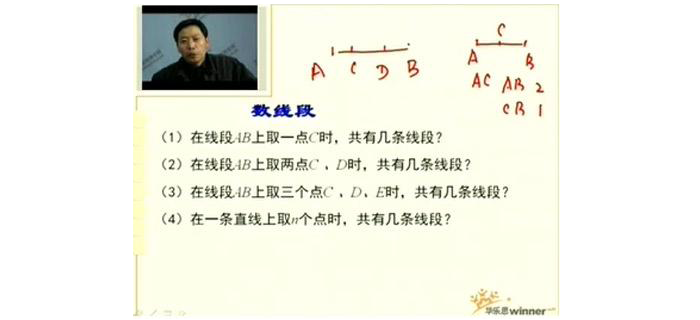 C
A C D B
A B
AC AB 2
CB 1
数线段
(1) 在线段AB上取一点C时，共有几条线段？
(2) 在线段AB上取两点C、D时，共有几条线段？
(3) 在线段AB上取三个点C、D、E时，共有几条线段？
(4) 在一条直线上取n个点时，共有几条线段？
华乐思winner